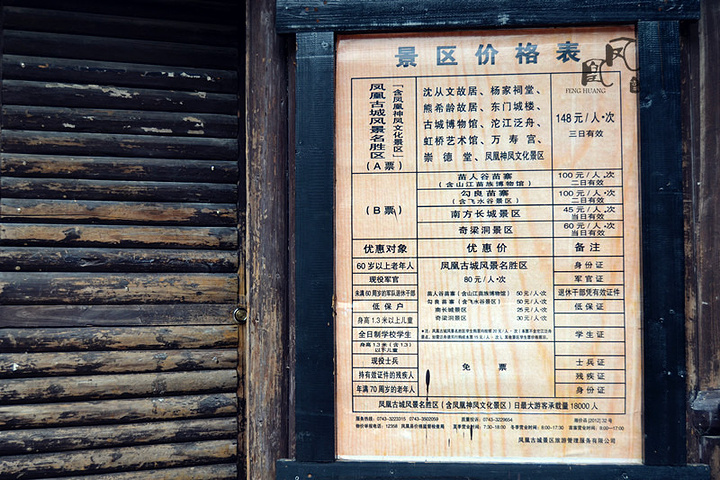 景区价格表
凤凰
FENG HUANG
凤凰古城风景名胜区
「含凤凰神凤文化景区」
(A票)
沈从文故居、杨家祠堂、
熊希龄故居、东门城楼、
古城博物馆、沱江泛舟、
虹桥艺术馆、万寿宫、
崇德堂、凤凰神凤文化景区
148元/人·次
三日有效
(B票)
苗人谷苗寨
(含山江苗族博物馆)
100元/人·次
二日有效
勾良苗寨
(含飞水谷景区)
100元/人·次
二日有效
南方长城景区
45元/人·次
当日有效
奇梁洞景区
60元/人·次
当日有效
优惠对象 优惠价 备注
60岁以上老年人
现役军官
未满60周岁的军队退休干部
低保户
身高1.3米以上儿童
全日制学校学生
凤凰古城风景名胜区
80元/人·次
苗人谷苗寨(含山江苗族博物馆) 50元/人·次
勾良苗寨(含飞水谷景区) 50元/人·次
南长城景区 25元/人·次
奇梁洞景区 30元/人·次
身份证
军官证
退休干部凭有效证件
低保证
学生证
身高1.3米(含1.3)
以下儿童
现役士兵
持有效证件的残疾人
年满70周岁的老年人
免票
士兵证
残疾证
身份证
凤凰古城风景名胜区(含凤凰神凤文化景区)日最大游客承载量18000人
服务热线:0743-3223315 0743-3502059
质量投诉:0743-3229654
湘价函[2012]32号
物价举报电话:12358 凤凰县价格监督检查局
夏季营业时间:7:30-18:00
冬季营业时间:8:00-17:30
凤凰古城景区旅游管理服务有限公司